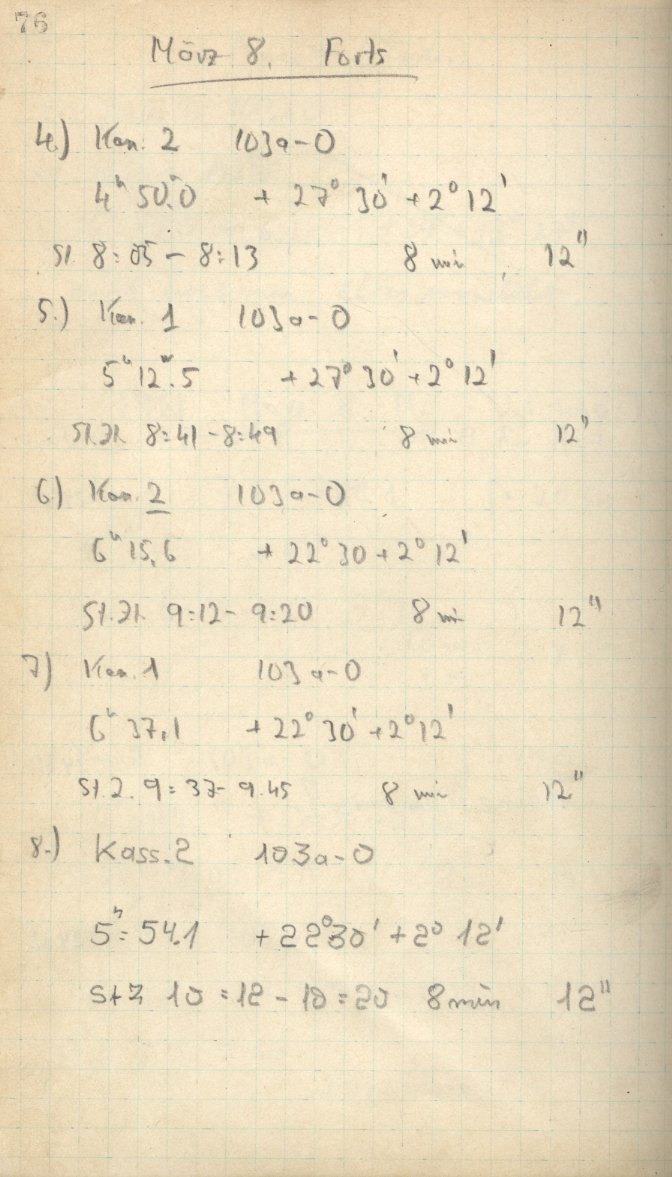 76
März 8. Forts
4.) Kas. 2 103a-O
4ʰ 50ᵐ.0 + 27° 30' + 2° 12'
St. 8:05 - 8:13 8 min 12"
5.) Kas. 1 103a-O
5ʰ 12ᵐ.5 + 27° 30' + 2° 12'
St.Zt. 8:41 - 8:49 8 min 12"
6.) Kas. 2 103a-O
6ʰ 15.6 + 22° 30 + 2° 12'
St.Zt. 9:12 - 9:20 8 min 12"
7) Kas. 1 103a-O
6ʰ 37.1 + 22° 30' + 2° 12'
St.Z. 9:37 - 9.45 8 min 12"
8.) Kass. 2 103a-O
5ʰ: 54.1 + 22° 30' + 2° 12'
StZ 10:12 - 10:20 8 min 12"